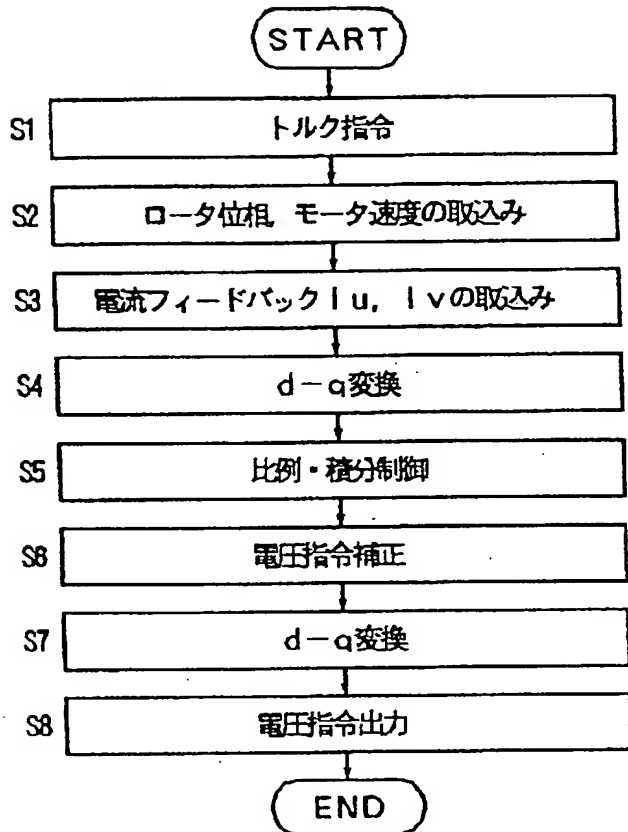 START
S1 トルク指令
S2 ロータ位相, モータ速度の取込み
S3 電流フィードバックIu, Ivの取込み
S4 d-q変換
S5 比例・積分制御
S6 電圧指令補正
S7 d-q変換
S8 電圧指令出力
END